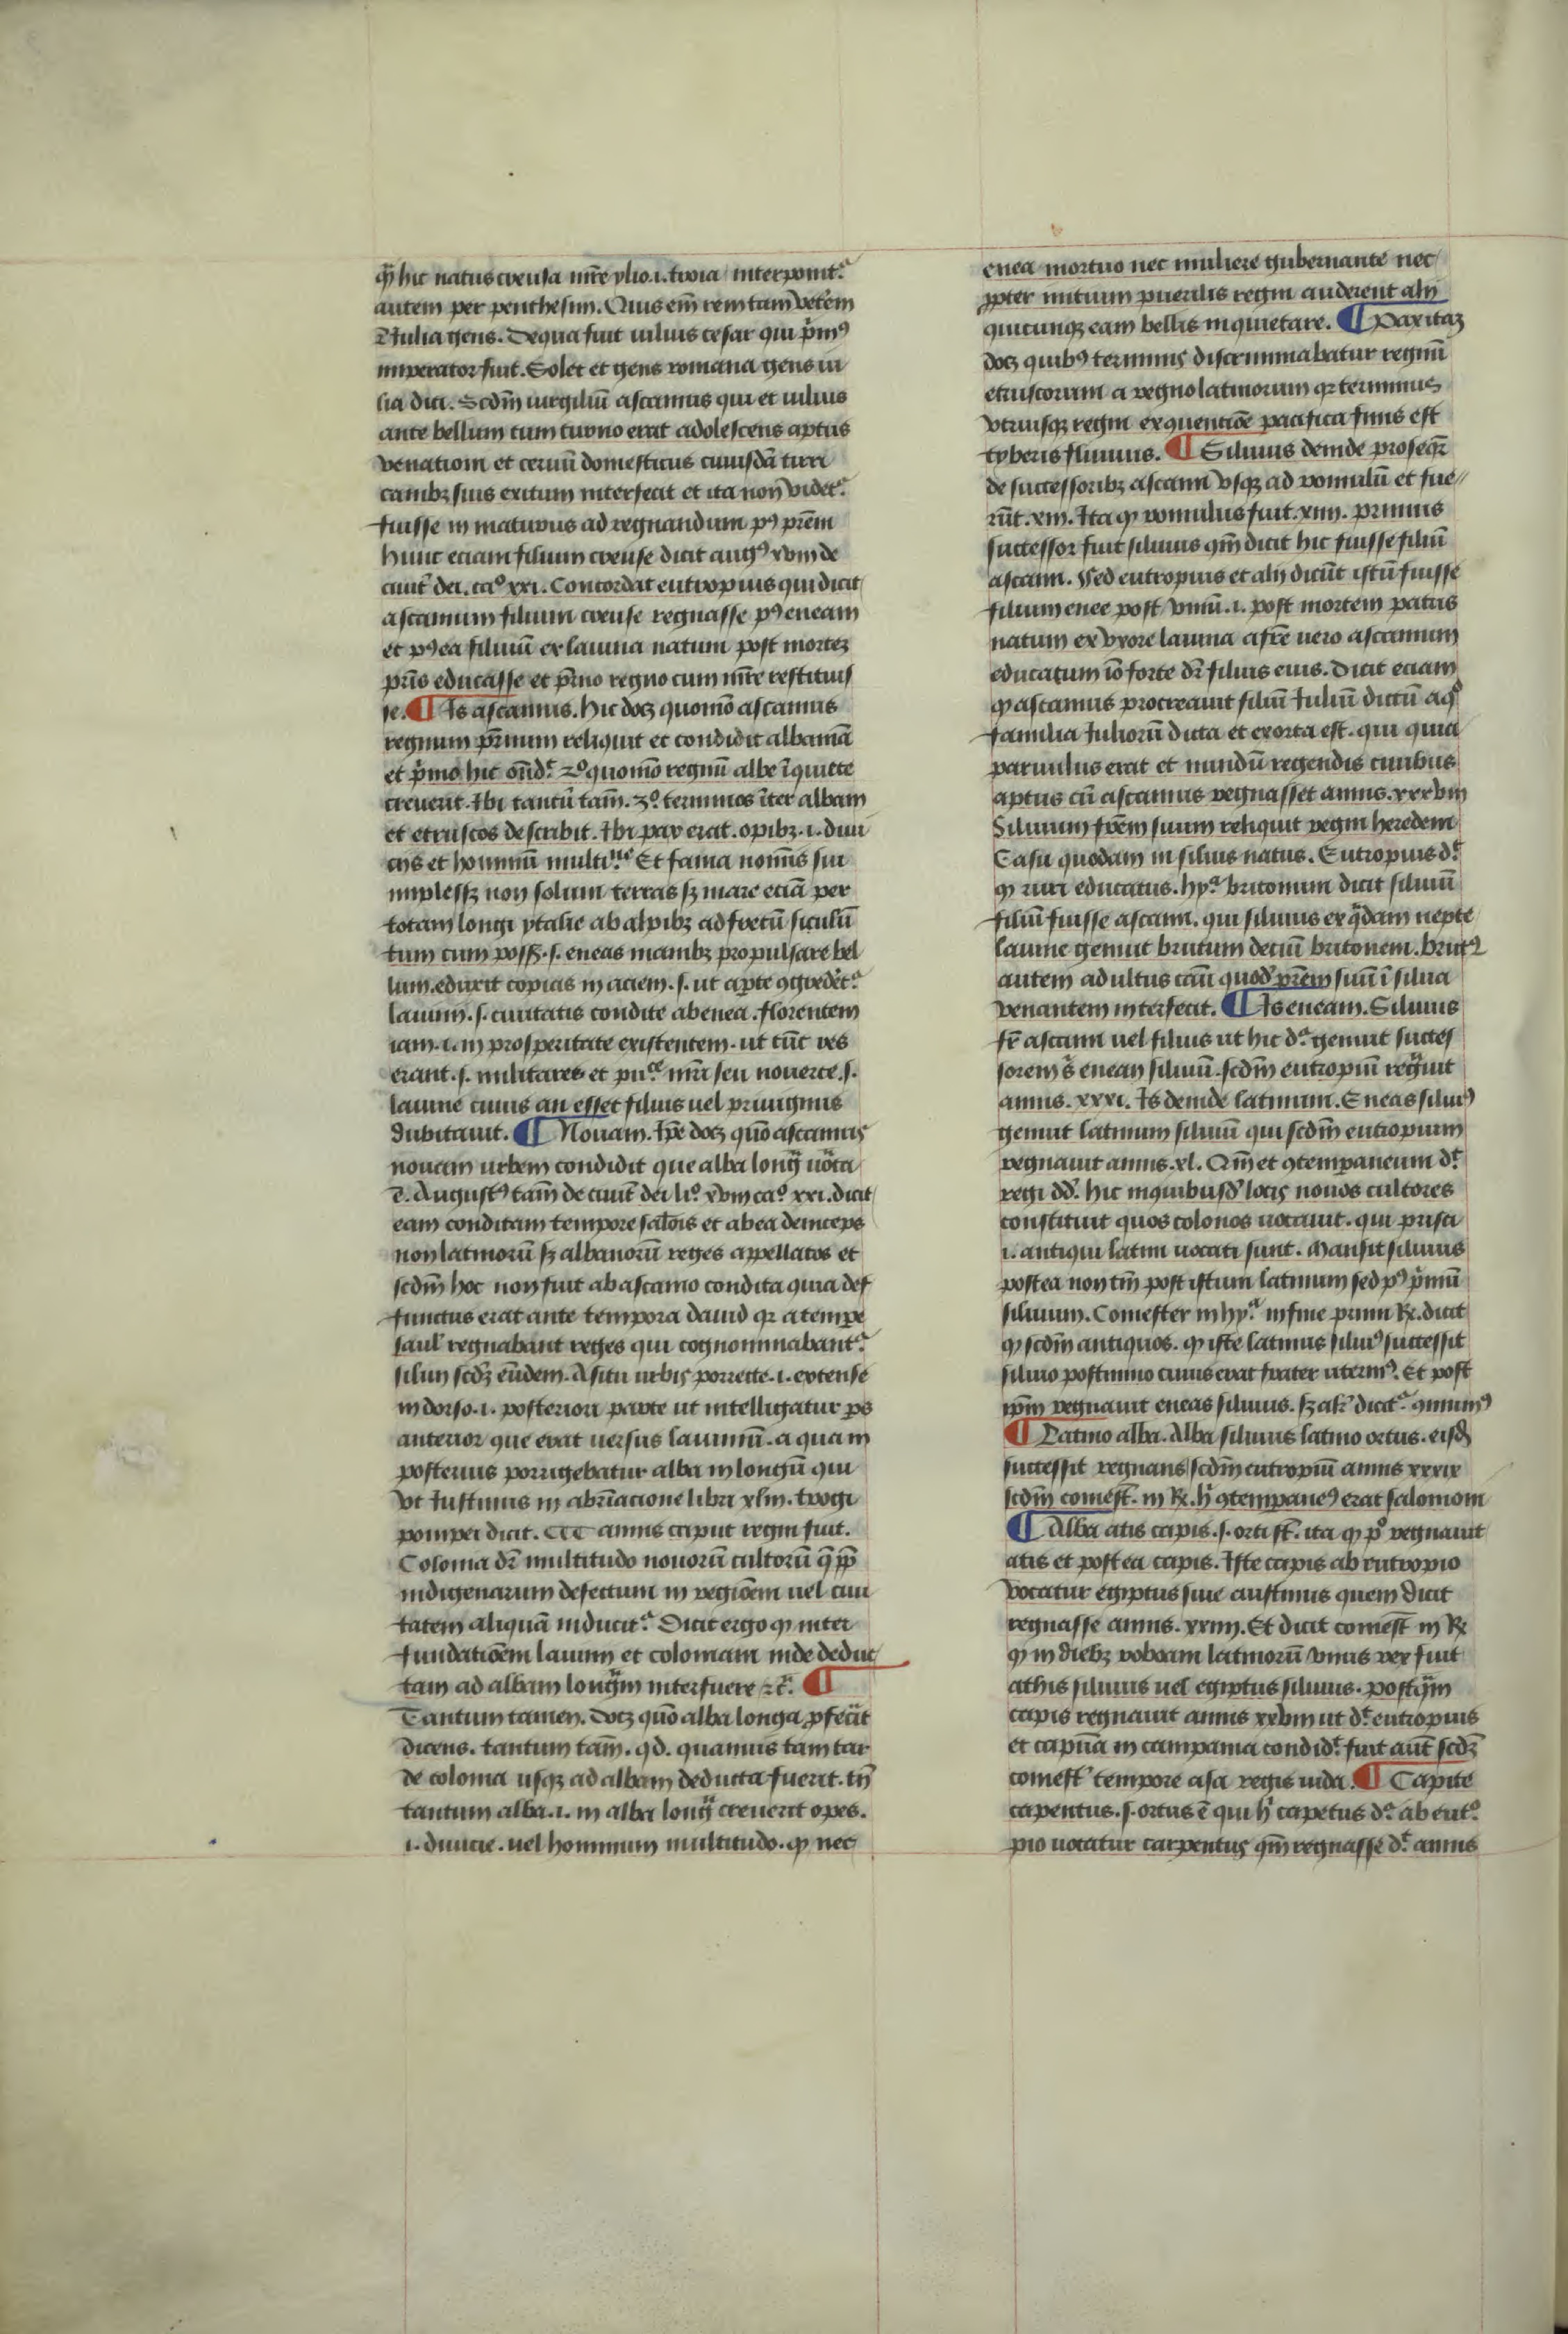 qͣ hic natus creusa mr̄e ylio .i. troia interponit᷒
autem per penthesim. Quis em̄ rem tam veterem
⁊ Iulia gens. De qua fuit iulius cesar qui p̄mꝰ
imperator fuit. Solet et gens romana gens iu
lia dici. Scdm̄ uirgiliū ascanius qui et iulius
ante bellum cum turno erat adolescens aptus
venationi et ceruū domesticus cuiusdā tirri
canibꝫ suis exitum interfecit et ita non videt᷒
fuisse in maturus ad regnandum pꝰ pr̄em
hunc eciam filium creuse dicit augꝰ xviii de
ciuit̄ dei. caº xxi. Concordat eutropius qui dicit
ascanium filium creuse regnasse pꝰ eneam
et pꝰea siluiū ex lauina natum post morteꝫ
pr̄is educasse et pr̄no regno cum mr̄e restituis
se. ¶ Is ascanius. hic docꝫ quomō ascanius
regnum pr̄num reliquit et condidit albaniā
et p̄mo hic on̄dͭ. 2º quomō regnū albe ī quiete
creuerit. Ibi tantū tam̄. 3º. terminos īter albam
et etruscos describit. Ibi pax erat. opibꝫ .i. diui
cijs et hominū multi.ͥⁿᵉ Et fama nominis sui
implessꝫ non solum terras sꝫ mare eciā per
totam longi ytalie ab alpibꝫ ad fretū siculū
tum cum possꝫ .s. eneas manibꝫ propulsare bel
lum. eduxit copias in aciem .s. ut aperte ꝯgredet᷒
lauini .s. ciuitatis condite ab enea. florentem
iam .i. in prosperitate existentem. ut tūc res
erant .s. militares et pu.ͣᵉ mr̄i seu nouerce .s.
lauine cuius an esset filius uel priuignus
dubitauit. ¶ Nouam. Ip̄e docꝫ quō ascanius
nouam urbem condidit que alba longͣ uocͣta
ē. Augustꝰ tam̄ de ciuit̄ dei liº xviii caº xxi. dicit
eam conditam tempore salōis et ab ea deinceps
non latinorū sꝫ albanorū reges appellatos et
scdm̄ hoc non fuit ab ascanio condita quia def
functus erat ante tempora dauid qꝛ a tempe
saul' regnabant reges qui cognominabant᷒
siluii scdꝫ eūdem. A situ urbis porrecte .i. extense
in dorso .i. posteriori parte ut intelligatur ps
anterior que erat uersus lauiniū. a qua in
posterius porrigebatur alba in longū qui
vt Iustinus in abr̄iacione libri xliii. trogi
pompei dicit. CCC annis caput regni fuit.
Colonia dr̄ multitudo nouorū cultorū q̄ pp̄
indigenarum defectum in regiōem uel ciui
tatem aliquā inducit᷒. Dicit ergo ꝙ inter
fundatiōem lauinij et coloniam inde deduc
tam ad albam longͣm interfuere ⁊ c̄. ¶
Tantum tamen. Docꝫ quō alba longa pfecit
dicens. tantum tam̄. qd. quamuis tam tar
de colonia usqꝫ ad albam deducta fuerit. tn̄
tantum alba .i. in alba longͣ creuerit opes.
.i. diuicie. uel hominum multitudo. ꝙ nec
enea mortuo nec muliere gubernante nec
ꝓpter initium puerilis regni auderent alij
quicunqꝫ eam bellis inquietare. ¶ Pax itaꝫ
docꝫ quibꝰ terminis discriminabatur regnū
etruscorum a regno latinorum qꝛ terminus
vtriusqꝫ regni ex quentiōe pacifica finis est
tyberis fluuius. ¶ Siluius deinde proseqr̄
de successoribꝫ ascanii vsqꝫ ad romulū et fue
rūt .xiii. Ita ꝙ romulus fuit .xiiii. primus
successor fuit siluius qm̄ dicit hic fuisse filiū
ascanii. Sed eutropius et alij dicūt istū fuisse
filium enee post vmū .i. post mortem patris
natum ex vxore lauina a fr̄e uero ascanium
educatum iō forte dr̄ filius eius. Dicit eciam
ꝙ ascanius procreauit filiū Iuliū dictū a qº
familia Iuliorū dicta et exorta est. qui quia
paruulus erat et nundū regendis ciuibus
aptus cū ascanius regnasset annis. xxxviii
Siluium fr̄em suum reliquit regni heredem
Casu quodam in siluis natus. Eutropius dͭ.
ꝙ ruri educatus. hyͣ. britonum dicit siluiū
filiū fuisse ascanii. qui siluius ex qͣdam nepte
lauine genuit brutum deciū britonem. brutꝰ
autem adultus casū quodͦ pr̄em suū ī silua
venantem interfecit. ¶ Is eneam. Siluius
fr̄ ascanii uel filius ut hic dͬ. genuit succes
sorem s̄ enean siluiū. scdm̄ eutropiū regͣuit
annis. xxxi. Is deinde latinum. Eneas siluiꝰ
genuit latinum siluiū qui scdm̄ eutropium
regnauit annis. xl. Qm̄ et ꝯtemporaneum dͭ.
regi dd̄. hic in quibusdͦ locis nouos cultores
constituit quos colonos uocauit. qui prisci
.i. antiqui latini uocati sunt. Mansit siluius
postea non tm̄ post istum latinum sed pꝰ p̄mū
siluium. Comestor in hyͣ. in fine primi R̄. dicit
ꝙ scdm̄ antiquos. ꝙ iste latinus siluiꝰ successit
siluio postumo cuius erat frater uterinꝰ. Et post
ip̄m regnauit eneas siluius. sꝫ ak' dicit᷒. ꝯnimꝰ
¶ Latino alba. Alba siluius latino ortus. eisdꝫ
successit regnans scdm̄ eutropiū annis xxxix
scdm̄ comest'. in R̄. hͥ ꝯtemporaneꝰ erat salomoni
¶ Alba atis capis .s. orti st'. ita ꝙ pº regnauit
atis et postea capis. Iste capis ab eutropio
vocatur egiptus siue austinus quem dicit
regnasse annis. xxiiii. Et dicit comest̄ in R̄
ꝙ in diebꝫ roboam latinorū vnus rex fuit
athis siluius uel egiptus siluius. postqͣm
capis regnauit annis xxviii ut dͭ. eutropius
et capuā in campania condidͭ. fuit aut̄ scdꝫ
comest' tempore asa regis iuda. ¶ Capite
capentus .s. ortus ē qui hͥ capetus dͬ. ab eutº.
pio uocatur carpentus qm̄ regnasse dͭ. annis